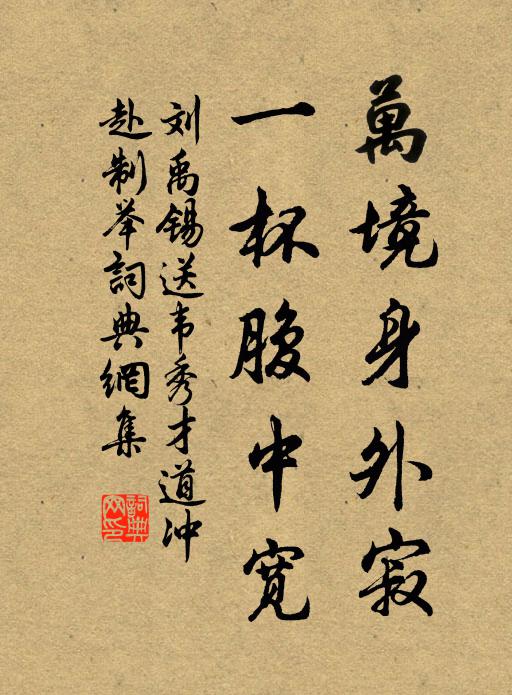 萬境身外寂
一杯腹中寬
刘禹锡送韦秀才道冲
赴制举詞典網集
詞典網印